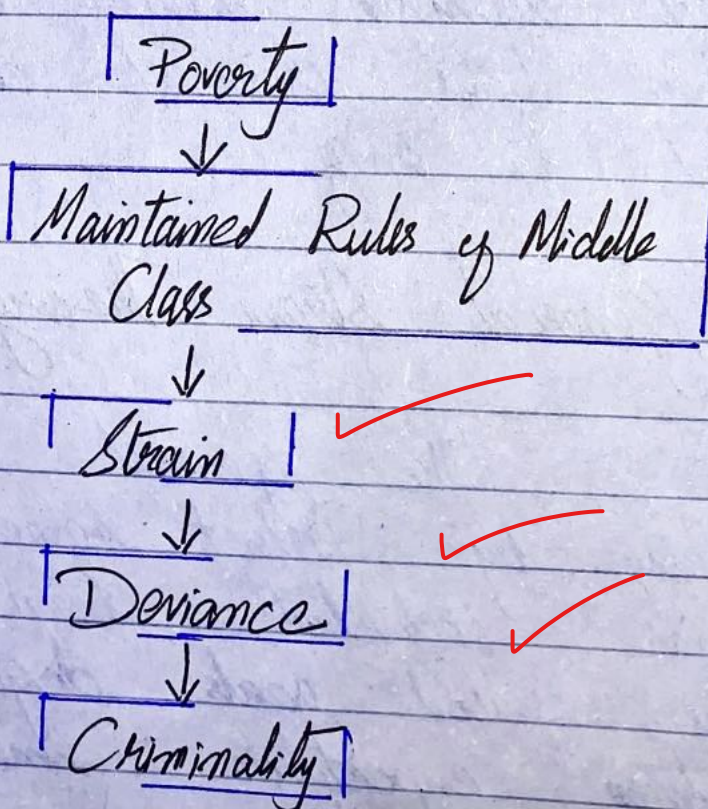 Poverty
Maintained Rules of Middle
Class
Strain
Deviance
Criminality